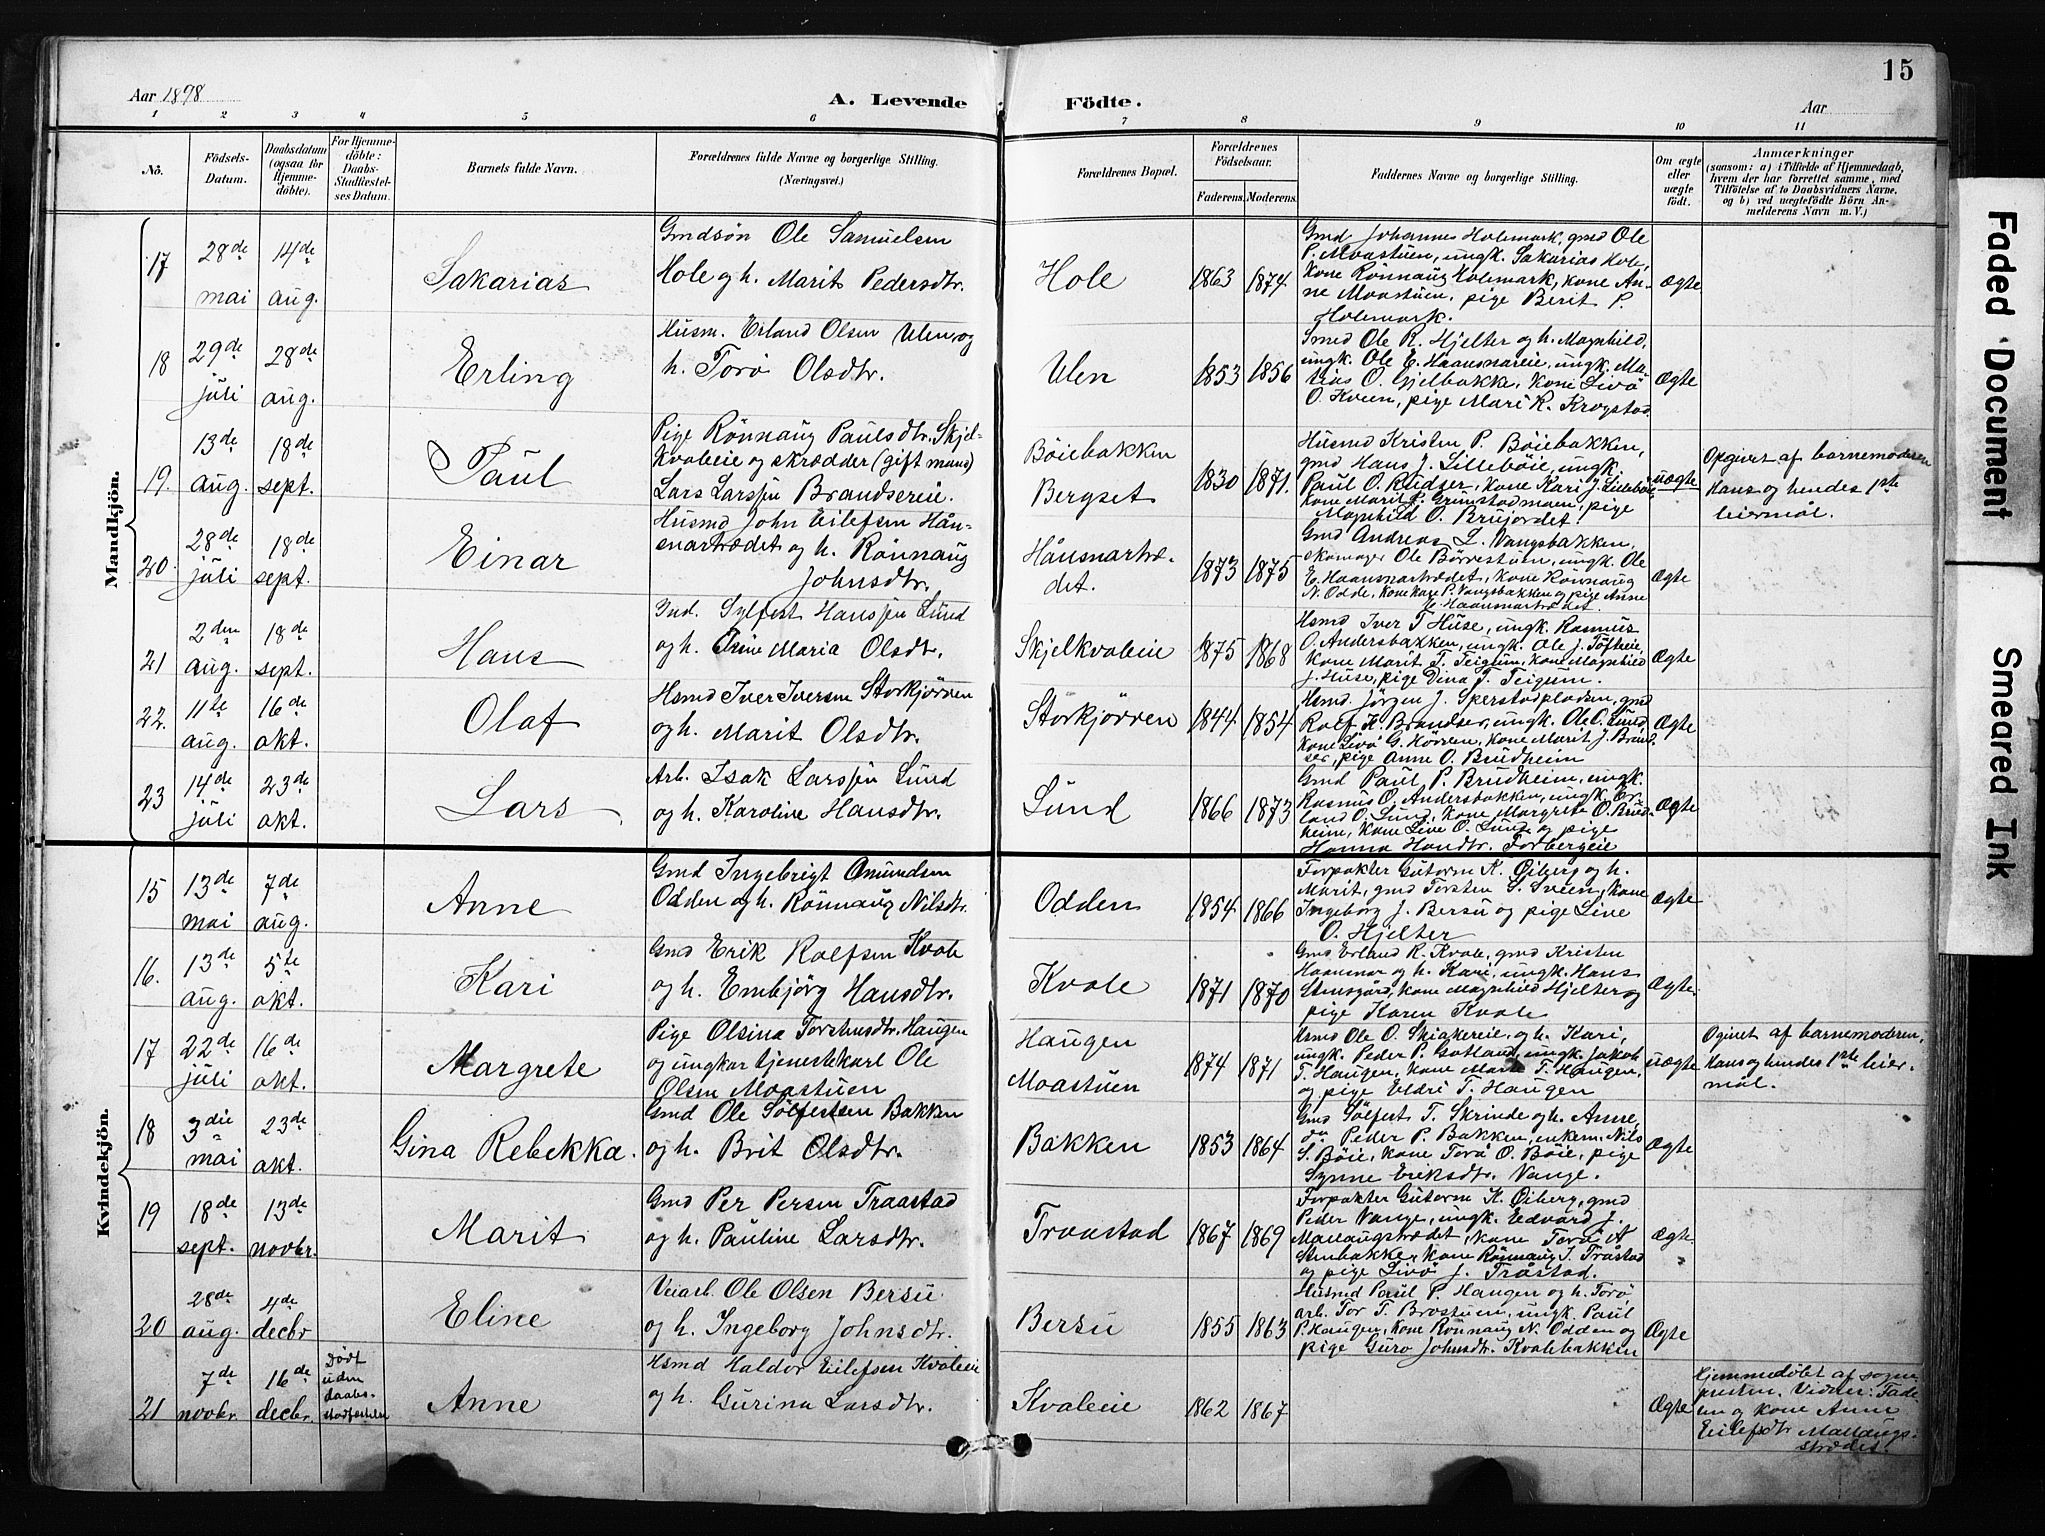 15
Aar 1898
A. Levende Födte.
Aar
1 2 3 4 5 6 7 8 9 10 11
No.
Födsels-Datum.
Daabsdatum (ogsaa for Hjemme-döbte).
For Hjemme-döbte: Daabs-Stadfæstel-ses Datum.
Barnets fulde Navn.
Forældrenes fulde Navne og borgerlige Stilling. (Næringsvei.)
Forældrenes Bopæl.
Forældrenes Födselsaar.
Faderens. Moderens.
Faddernes Navne og borgerlige Stilling.
Om ægte eller uægte födt.
Anmærkninger
(saasom: a) i Tilfælde af Hjemmedaab, hvem der har forrettet samme, med Tilföielse af to Daabsvidners Navne, og b) ved uægtefödte Börn Anmelderens Navn m. V.)
Mandkjön.
17
28de mai
14de aug.
Sakarias
Gmdsön Ole Samuelsen
Hole og h. Marit Pedersdtr.
Hole
1863 1874
Gmd Johannes Holemark, gmd Ole
P. Moastuen, ungk. Sakarias Hole,
Kone Rönnaug Holemark, kone An-
ne Moastuen, pige Berit P.
Holemark.
Ægte
18
29de juli
28de aug.
Erling
Husm. Erland Olsen Ulen og
h. Torö Olsdtr.
Ulen
1853 1856
Smed Ole R. Hjelter og h. Magnhild,
ungk. Ole E. Haansnareie, ungk. Ma-
tias O. Gjelbakke, kone Livö
O. Kveen, pige Mari R. Krogstad
Ægte
19.
13de aug.
18de sept.
Paul
Pige Rönnaug Paulsdtr. Skjel-
kvaleie og skrædder (gift mand)
Lars Larssen Brandsereie.
Böiebakken
Bergset
1830 1871.
Husmd Kristen P. Böiebakken,
gmd Hans J. Lilleböie, ungk.
Paul O. Rudser, kone Kari J. Lilleböie
kone Marit P. Grimstadmoen, pige
Magnhild O. Brujordet.
uægte
Opgivet af barnemoderen
Hans og hendes 1ste
leiermål.
20.
28de juli
18de sept.
Einar
Husmd John Eilefsen Hån-
snartrædet og h. Rönnaug
Johnsdtr.
Hånsnartræ-
det.
1873 1875
Gmd Andreas L. Vangsbakken,
skomager Ole Börrestuen, ungk. Ole
E. Haansnartrædet, kone Rönnaug
N. Odde, kone Kari P. Vangsbakken og pige Anne
E. Haansnartrædet.
Ægte
21
2den aug.
18de sept.
Hans
Ind. Sylfest Hanssen Lund
og h. Trine Maria Olsdtr.
Skjelkvaleie
1875 1868
Hsmd Iver T. Huse, ungk. Rasmus
O. Andersbakken, ungk. Ole J. Tofteie,
kone Marit T. Teigum, kone Magnhild
J. Huse, pige Dina T. Teigum.
Ægte
22.
11te aug.
16de okt.
Olaf
Hsmd Iver Iversen Storkjörren
og h. Marit Olsdtr.
Storkjörren
1844 1854
Hsmd. Jörgen J. Sperstadpladsen, gmd
Rolf H. Brandser, ungk. Ole O. Lund,
kone Livö G. Hörven, kone Marit J. Brand-
ser, pige Anne O. Brudheim
Ægte
23
14de juli
23de okt.
Lars
Arb. Isak Larssen Lund
og h. Karoline Hansdtr.
Lund
1866 1873
Gmd Paul P. Brudheim, ungk.
Rasmus O. Andersbakken, ungk. Er-
land O. Lund, kone Margrete O. Brud-
heim, kone Live O. Lund og pige
Hanna Handtr. Forbergeie
Ægte
Kvindekjön.
15
13de mai
7de aug.
Anne
Gmd Ingebrigt Amundsen
Odden og h. Rönnaug Nilsdtr.
Odden
1854 1866
Forpakter Gutorm K. Öiberg og h.
Marit, gmd Torsten S. Sveen, kone
Ingeborg J. Bersu og pige Line
O. Hjelter
Ægte
16.
13de aug.
5te okt.
Kari
Gmd Erik Rolfsen Kvale
og h. Embjörg Hansdtr.
Kvale
1871 1870
Gmd Erland R. Kvale, gmd Kristen
Haansnar og h. Kari, ungk. Hans
Stensgård, kone Magnhild Hjelter og
pige Karen Kvale
Ægte
17
22de juli
16de okt.
Margrete
Pige Olsina Torstensdtr. Haugen
og ungkar tjenestekarl Ole
Olsen Moastuen
Haugen
Moastuen
1874 1871
Hsmd Ole O. Skjakereie, og h. Kari,
ungk. Peder P. Gotland, ungk. Jakob
T. Haugen, kone Marte T. Haugen,
og pige Eldri T. Haugen
uægte
Ogivet af barnemoderen,
Hans og hendes 1ste leier-
mål.
18
3die mai
23de okt.
Gina Rebekka.
Gmd Ole Sölfestsen Bakken
og h. Brit Olsdtr.
Bakken
1853 1864
Gmd Sölfest T. Skrinde og h. Anne,
do Peder P. Bakken, enkem. Nils
S. Böie, kone Torö O. Böie, pige
Synne Eriksdtr. Vange.
Ægte
19
18de sept.
13de novbr.
Marit
Gmd Per Persen Traastad
og h. Pauline Larsdtr.
Traastad
1867 1869
Forpakter Gutorm K. Öiberg, gmd
Peder Vange, ungk. Edvard J.
Mallaugstrædet, kone Torö A
Stenbakke, kone Rönnaug I. Tråstad
og pige Livö J. Tråstad.
Ægte
20
28de aug.
4de decbr
Eline
Veiarb. Ole Olsen Bersu
og h. Ingeborg Johnsdtr.
Bersu
1855 1863
Husmd Paul P. Haugen og h. Torö,
arb. Tor T. Brostuen, ungk. Paul
P. Haugen, kone Rönnaug N. Odden og
pige Guro Johnsdtr. Kvalebakken
Ægte
21
7de novbr.
16de decbr.
Dödt uden daabs-stadfæstelse
Anne
Hsmd Haldor Eilefsen Kvaleeie
og h. Gurina Larsdtr.
Kvaleeie
1862 1867
Ægte
Hjemmedöbt af sogne
presten. Vidner: Fade
ren og kone Anne
Eilefsdtr Mallaugs-
trædet
Faded Document
Smeared Ink